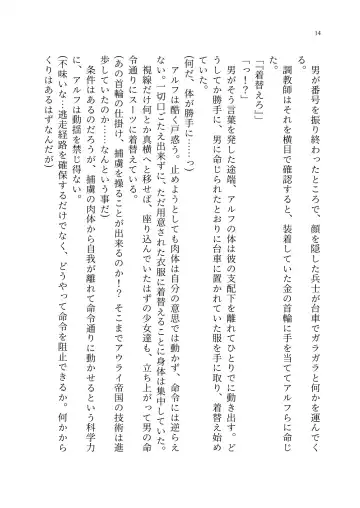 14
男が番号を振り終わったところで、顔を隠した兵士が台車でガラガラと何かを運んでく
る。
調教師はそれを横目で確認すると、装着していた金の首輪に手を当ててアルフらに命じ
た。
「『着替えろ』」
「っ！？」
男がそう言葉を発した途端、アルフの体は彼の支配下を離れてひとりでに動き出す。ど
うしてか勝手に、男に命じられたとおりに台車に置かれていた服を手に取り、着替え始め
ていた。
(何だ、体が勝手に……っ)
アルフは酷く戸惑う。止めようとしても肉体は自分の意思では動かず、命令には逆らえ
ない。一切口ごたえ出来ずに、ただ用意された衣服に着替えることに身体は集中していた。
視線だけ何とか真横へと移せば、座り込んでいたはずの少女達も、立ち上がって男の命
令通りにスーツに着替えている。
(あの首輪の仕掛け、捕虜を操ることが出来るのか！？ そこまでアウライ帝国の技術は進
歩していたのか……なんという事だ)
条件はあるのだろうが、捕虜の肉体から自我が離れて命令通りに動かせるという科学力
に、アルフは動揺を禁じ得ない。
(不味いな…逃走経路を確保するだけでなく、どうやって命令を阻止できるか。何かから
くりはあるはずなんだが)